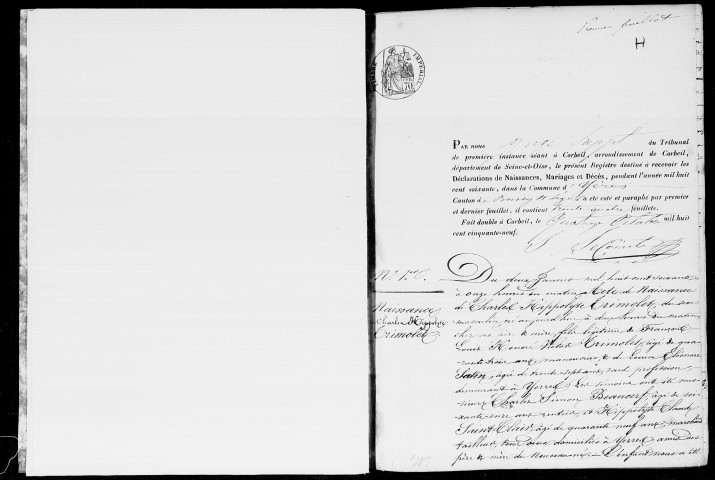 Premier feuillet
H
TIMBRE IMPERIAL
PAR nous Juge Suppt du Tribunal
de première instance séant à Corbeil, arrondissement de Corbeil,
département de Seine-et-Oise, le présent Registre destiné à recevoir les
Déclarations de Naissances, Mariages et Décès, pendant l'année mil huit
cent soixante, dans la Commune d'Yères
Canton de Boissy St Léger a été coté et paraphé par premier
et dernier feuillet, il contient trente quatre feuillets.
Fait double à Corbeil, le Quatorze Octobre mil huit
cent cinquante-neuf.
No 1er
Naissance
Charles Hippolyte
Trimolet
Du deux Janvier mil huit cent soixante
à onze heures du matin Acte de Naissance
de Charles Hippolyte Trimolet, du sexe
masculin, né aujourd'hui à deux heures du matin
chez ses père & mère, fils légitime de François
Louis Honoré Victor Trimolet, âgé de qua-
rante trois ans, manouvrier, & de Louise Eléonore
âgée de trente sept ans, sans profession,
demeurant à Yerres; Les témoins ont été mes-
sieurs Charles Simon Beaucerf, âgé de soi-
xante onze ans, rentier, et Hippolyte Claude
Saint Clair, âgé de quarante neuf ans, marchand
tailleur, tous deux domiciliés à Yerres, amis des
père & mère du Nouveau-né. L'enfant nous a été